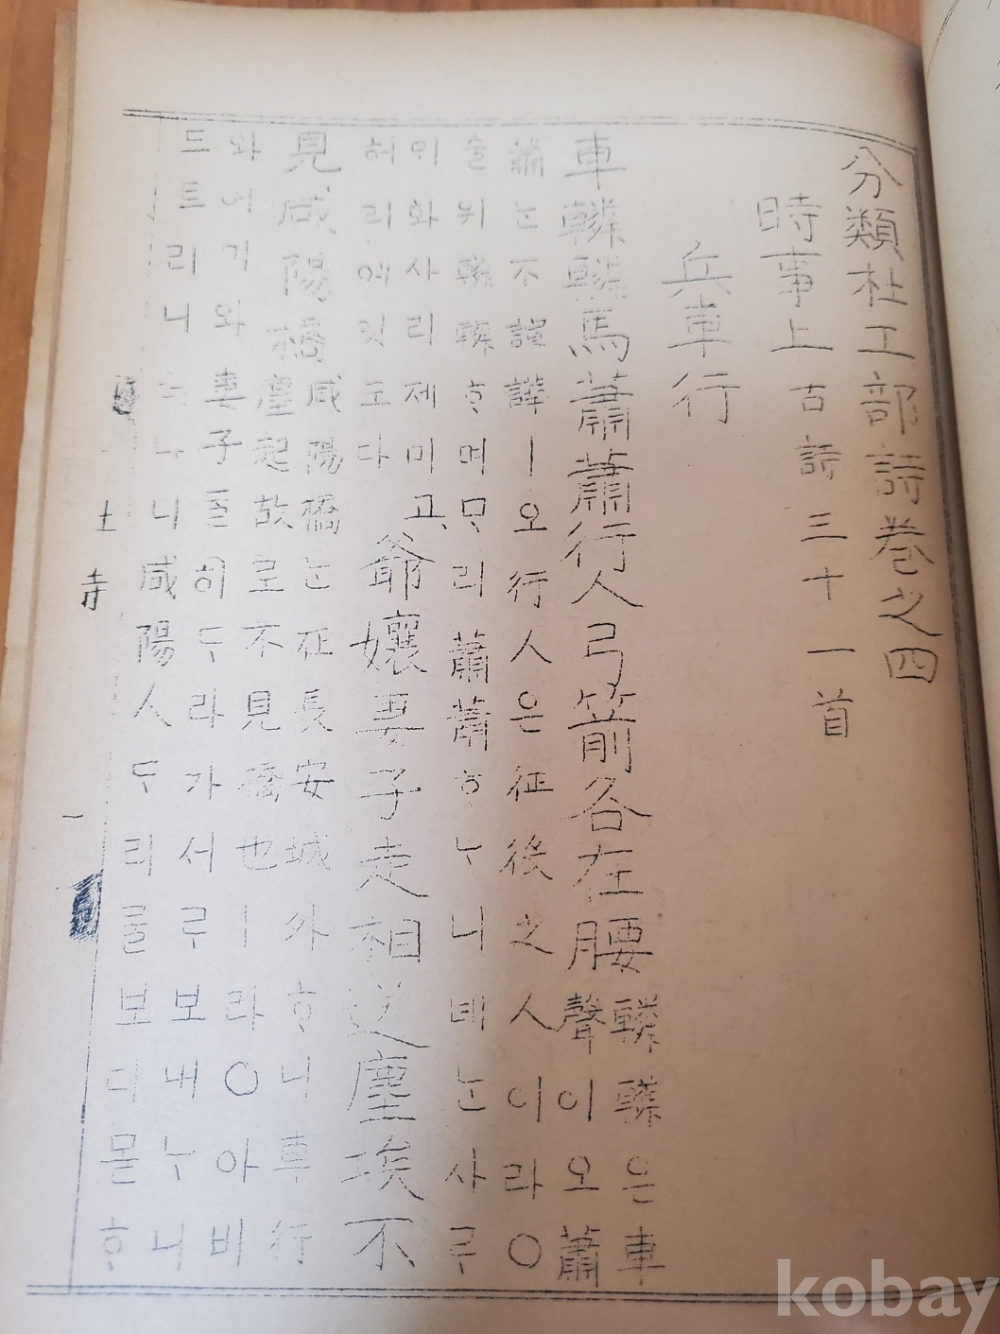 分類杜工部詩卷之四
時事上 古詩三十一首
兵車行
車轔轔馬蕭蕭行人弓箭各在腰 轔轔은車
聲이오蕭
蕭는不諠譁ㅣ오行人은征役之人이라○
술위轔轔ᄒᆞ며ᄆᆞ리蕭蕭ᄒᆞᄂᆞ니녀는사ᄅᆞ
ᄆᆡ화사리제
허리여잇도다
爺孃妻子走相送塵埃不
見咸陽橋 咸陽橋는在長安城外ᄒᆞ니車行
塵起故로不見橋也ㅣ라○아비
와어미와妻子ᄃᆞᆯ히ᄃᆞ라가서르보내ᄂᆞ니
드트리니 니咸陽人ᄃᆞ리ᄅᆞᆯ보디몯ᄒᆞ
kobay